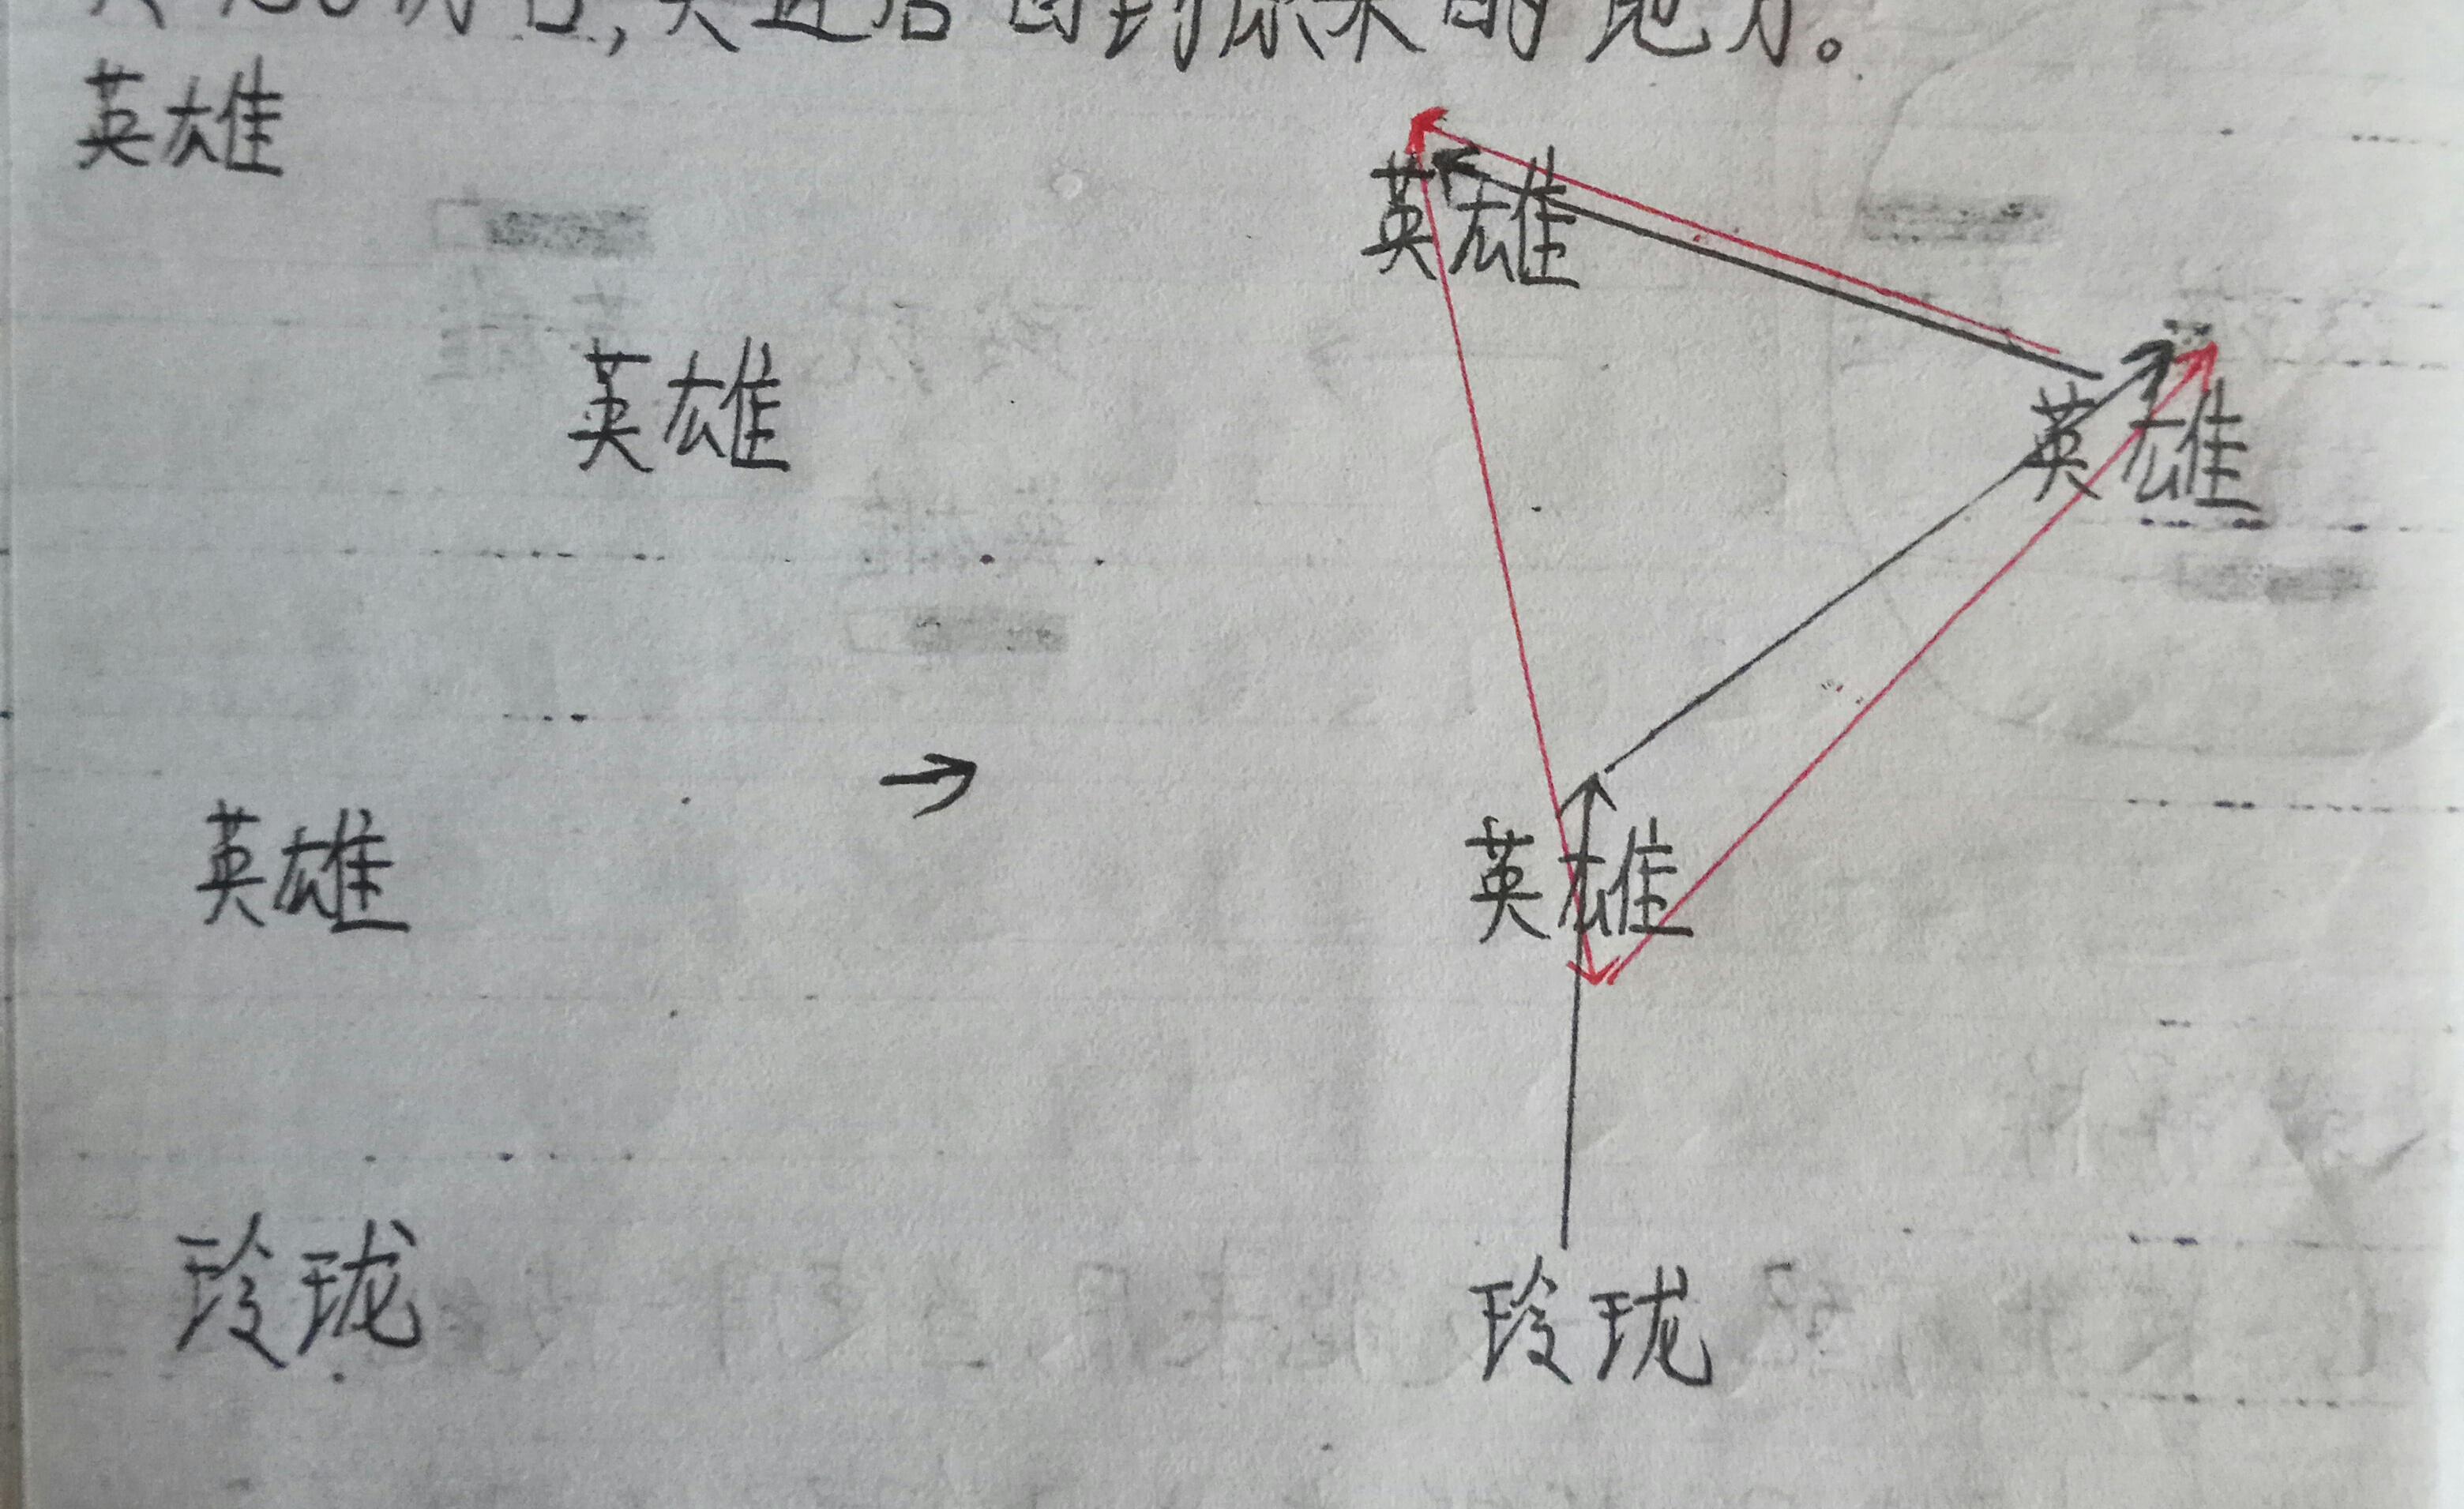 后回到原来的地方。
英雄
英雄
英雄
英雄
→
英雄
英雄
玲珑
玲珑